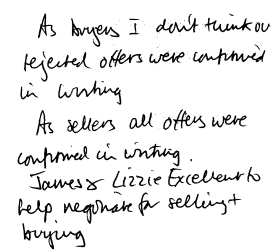 As buyers I don't think our
rejected offers were confirmed
in writing
As sellers all offers were
confirmed in writing.
James & Lizzie Excellent to
help negotiate for selling +
buying